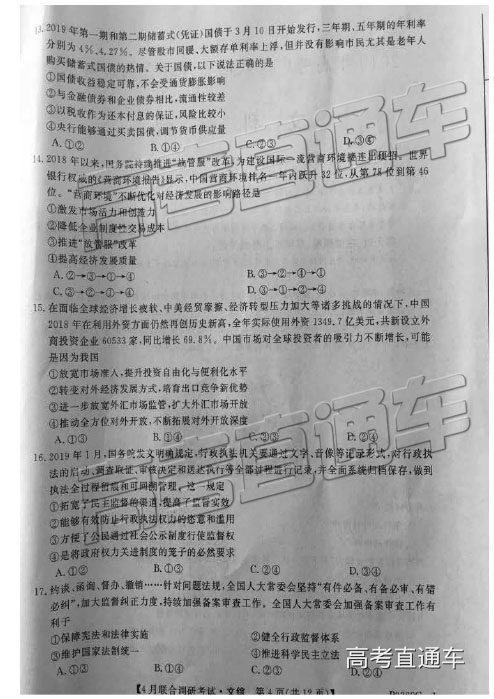 13. 2019年第一期和第二期储蓄式(凭证)国债于3月10日开始发行,三年期、五年期的年利率
分别为4%、4.27%。尽管股市回暖、大额存单利率上浮,但并没有影响市民尤其是老年人
购买储蓄式国债的热情。关于国债,以下说法正确的是
①国债收益稳定可靠,不会受通货膨胀影响
②与金融债券和企业债券相比,流通性较差
③以税收作为还本付息的保证,风险比较小
④央行能够通过买卖国债,调节货币供应量
A.①② B.①④ C.②③ D.③④
14. 2018年以来,国务院持续推进“放管服”改革,为建设国际一流营商环境接连出硬招。世界
银行权威的《营商环境报告》显示,中国营商环境排名一年内跃升32位,从第78位到第46
位。“营商环境”不断优化对经济发展的影响路径是
①激发市场活力和创造力
②降低企业制度性交易成本
③推进“放管服”改革
④提高经济发展质量
A.②→③→①→④ B.③→②→①→④
C.②→③→④→① D.③→①→②→④
15. 在面临全球经济增长疲软、中美经贸摩擦、经济转型压力加大等诸多挑战的情况下,中国
2018年在利用外资方面仍然再创历史新高,全年实际使用外资1349.7亿美元,共新设立外
商投资企业60533家,同比增长69.8%。中国市场对全球投资者的吸引力不断增长,可能
是因为我国
①放宽市场准入,提升投资自由化与便利化水平
②转变对外经济发展方式,培育出口竞争新优势
③进一步放宽外汇市场监管,扩大外汇市场开放
④推动全方位对外开放,不断拓展对外开放水平
A.①③ B.①④ C.②③ D.②④
16. 2019年1月,国务院发文明确规定,行政执法机关要通过文字、音像等记录形式,对行政执
法的启动、调查取证、审核决定和送达执行等全部过程进行记录,并全面系统归档保存,做到
执法全过程留痕和可回溯管理。这一规定
①拓宽了民主监督的渠道,提高了监督实效
②能够有效防止行政执法权力的恣意和滥用
③方便了公民通过社会公示制度行使监督权
④是将政府权力关进制度的笼子的必然要求
A.①② B.①③ C.②④ D.③④
17. 约谈、函询、督办、撤销……针对问题法规,全国人大常委会坚持“有件必备、有备必审、有错
必纠”,加大监督纠正力度,持续加强备案审查工作。全国人大常委会加强备案审查工作有
利于
①保障宪法和法律实施 ②健全行政监督体系
③维护国家法制统一 ④推进科学民主立法
A.①③ B.①④ C.②③ D.②④
【4月联合调研考试·文综 第4页(共12页)】
高考直通车